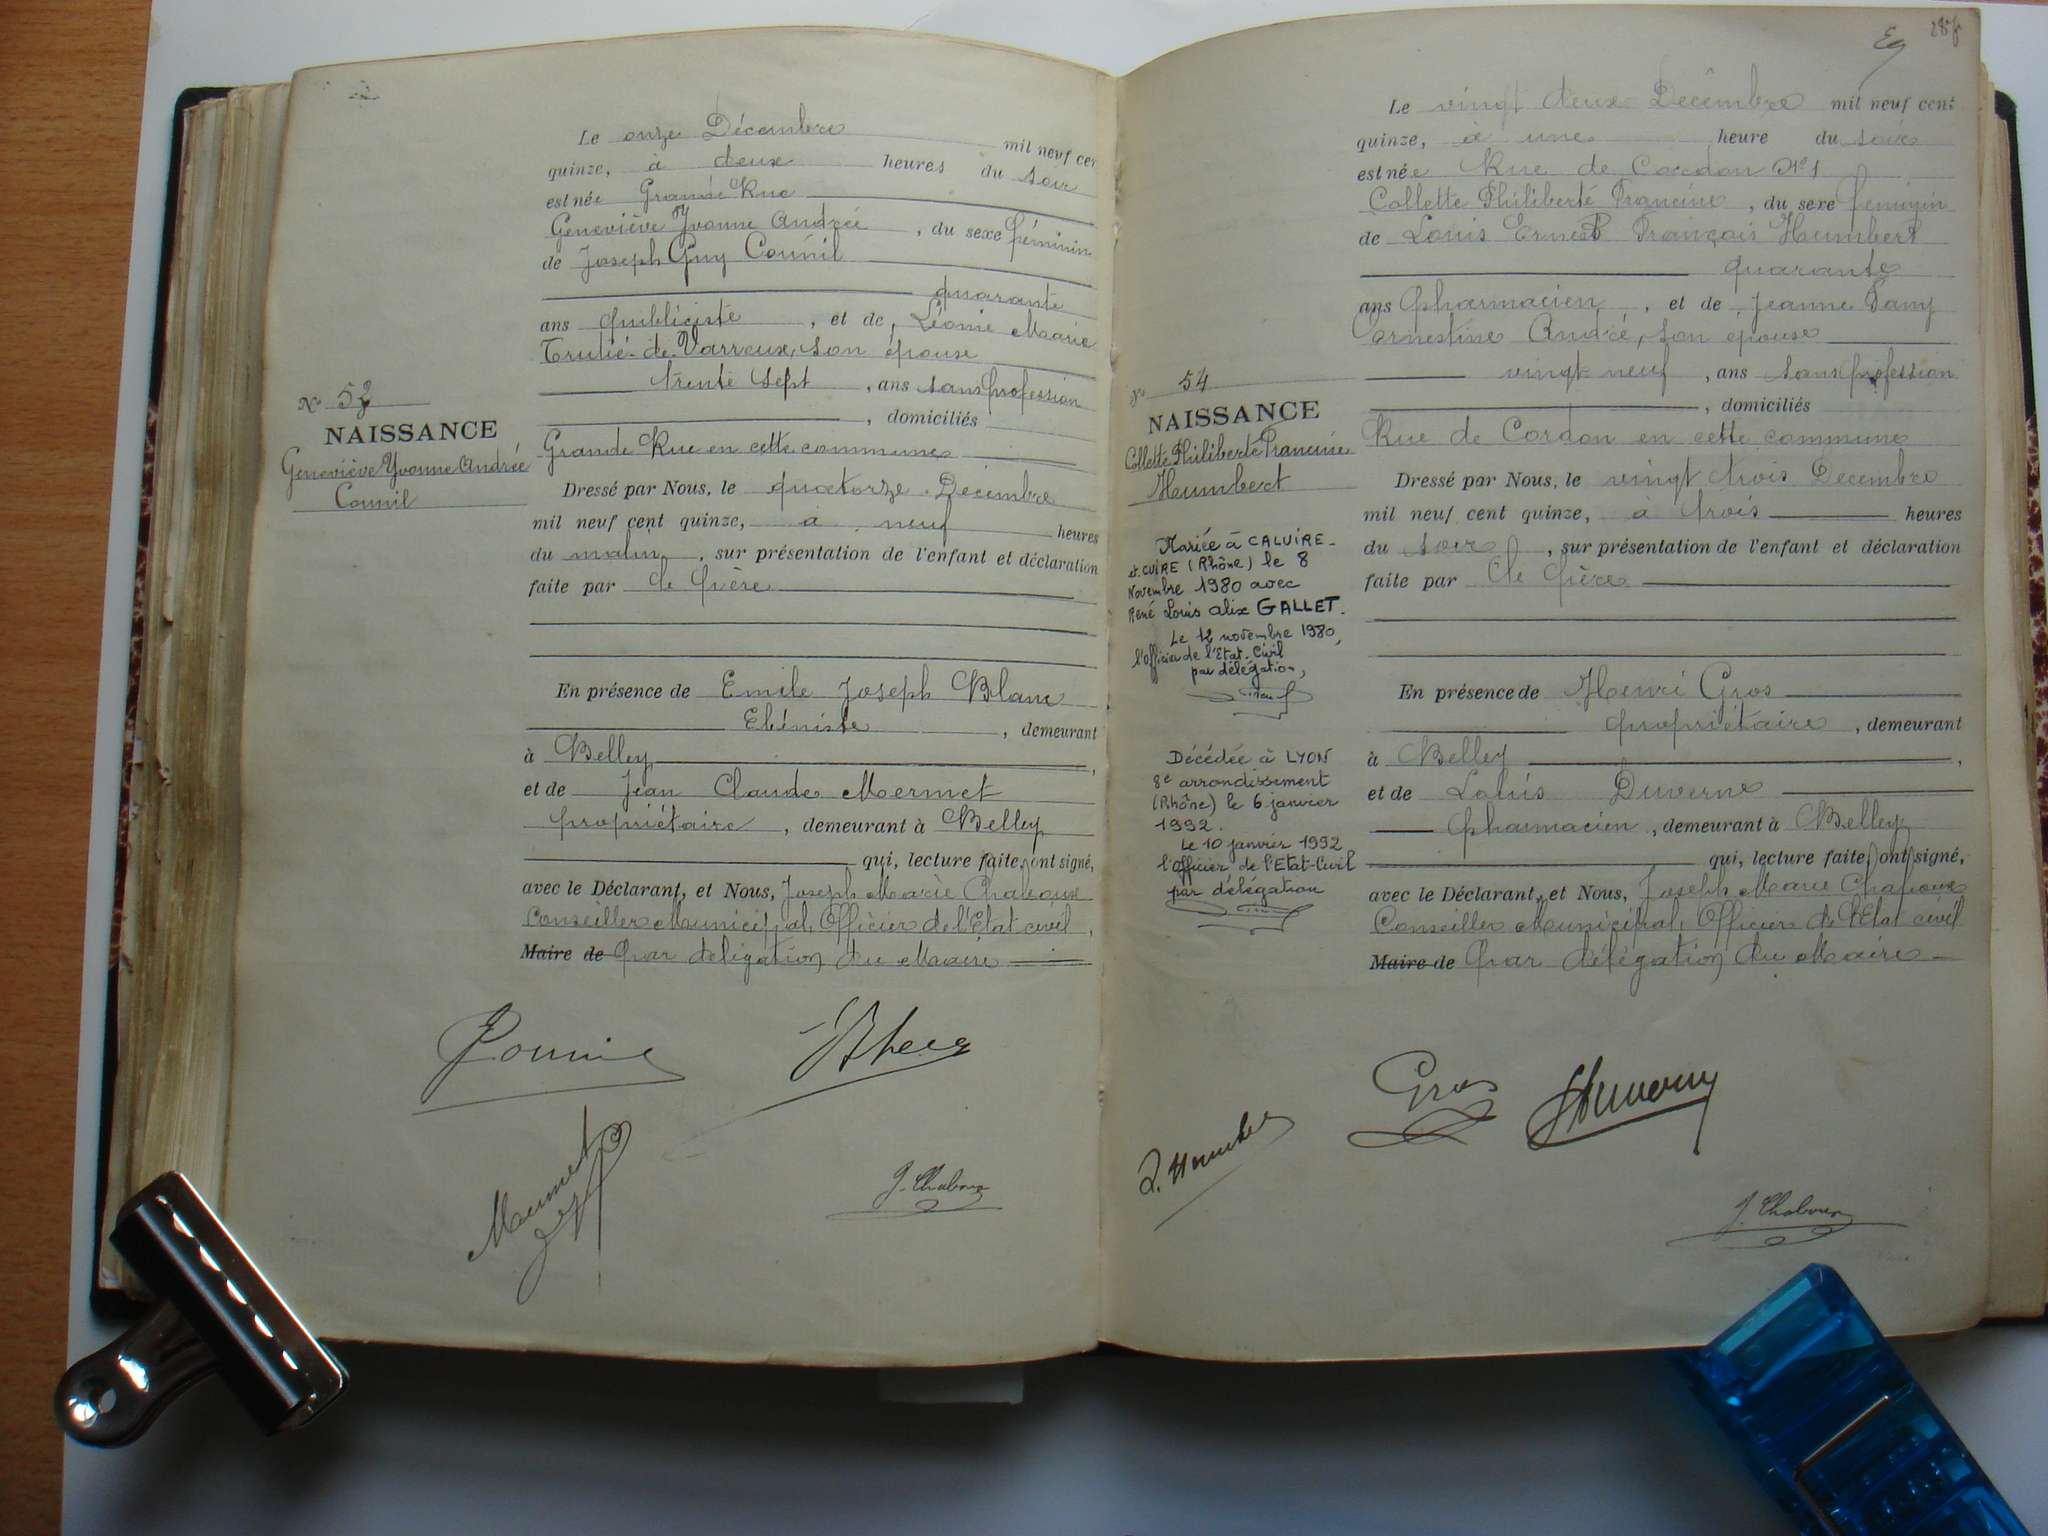 Le onze Décembre mil neuf cen
quinze, à deux heures du soir
est née Grande Rue
Geneviève Yvonne Andrée, du sexe féminin
de Joseph Guy Counil
quarante
ans publiciste, et de Léonie Marie
Trutié de Varreux, son épouse
trente sept, ans sans profession
, domiciliés
Grande Rue en cette commune
N° 53
NAISSANCE
Geneviève Yvonne Andrée
Counil
Dressé par Nous, le quatorze Décembre
mil neuf cent quinze, à neuf heures
du matin, sur présentation de l'enfant et déclaration
faite par le Père
En présence de Emile Joseph Blanc
Ebéniste, demeurant
à Belley,
et de Jean Claude Mermet
propriétaire, demeurant à Belley
qui, lecture faite, ont signé,
avec le Déclarant, et Nous, Joseph Marie Chaboux
Conseiller Municipal, Officier de l'Etat civil,
Maire de Par délégation du Maire
Mermet
J. Chaboux
Le vingt deux Décembre mil neuf cent
quinze, à une heure du soir
est née Rue de Cordon N° 1
Collette Philiberte Francine, du sexe féminin
de Louis Ernest François Humbert
quarante
ans Pharmacien, et de Jeanne Fany
Ernestine André, son épouse
vingt neuf, ans sans profession
, domiciliés
Rue de Cordon en cette commune
N° 54
NAISSANCE
Collette Philiberte Francine
Humbert
Mariée à CALUIRE-
et.CUIRE (Rhône) le 8
Novembre 1980 avec
René Louis alix GALLET.
Le 12 novembre 1980,
l'officier de l'Etat-Civil
par délégation,
Décédée à LYON
8e arrondissement
(Rhône) le 6 janvier
1992.
Le 10 janvier 1992
l'officier de l'Etat-Civil
par délégation
Dressé par Nous, le vingt trois Décembre
mil neuf cent quinze, à trois heures
du soir, sur présentation de l'enfant et déclaration
faite par le Père
En présence de Henri Gros
propriétaire, demeurant
à Belley,
et de Louis Duverne
Pharmacien, demeurant à Belley
qui, lecture faite, ont signé,
avec le Déclarant, et Nous, Joseph Marie Chaboux
Conseiller Municipal, Officier de l'Etat civil
Maire de Par délégation du Maire
Gros
L. Humbert
J. Chaboux